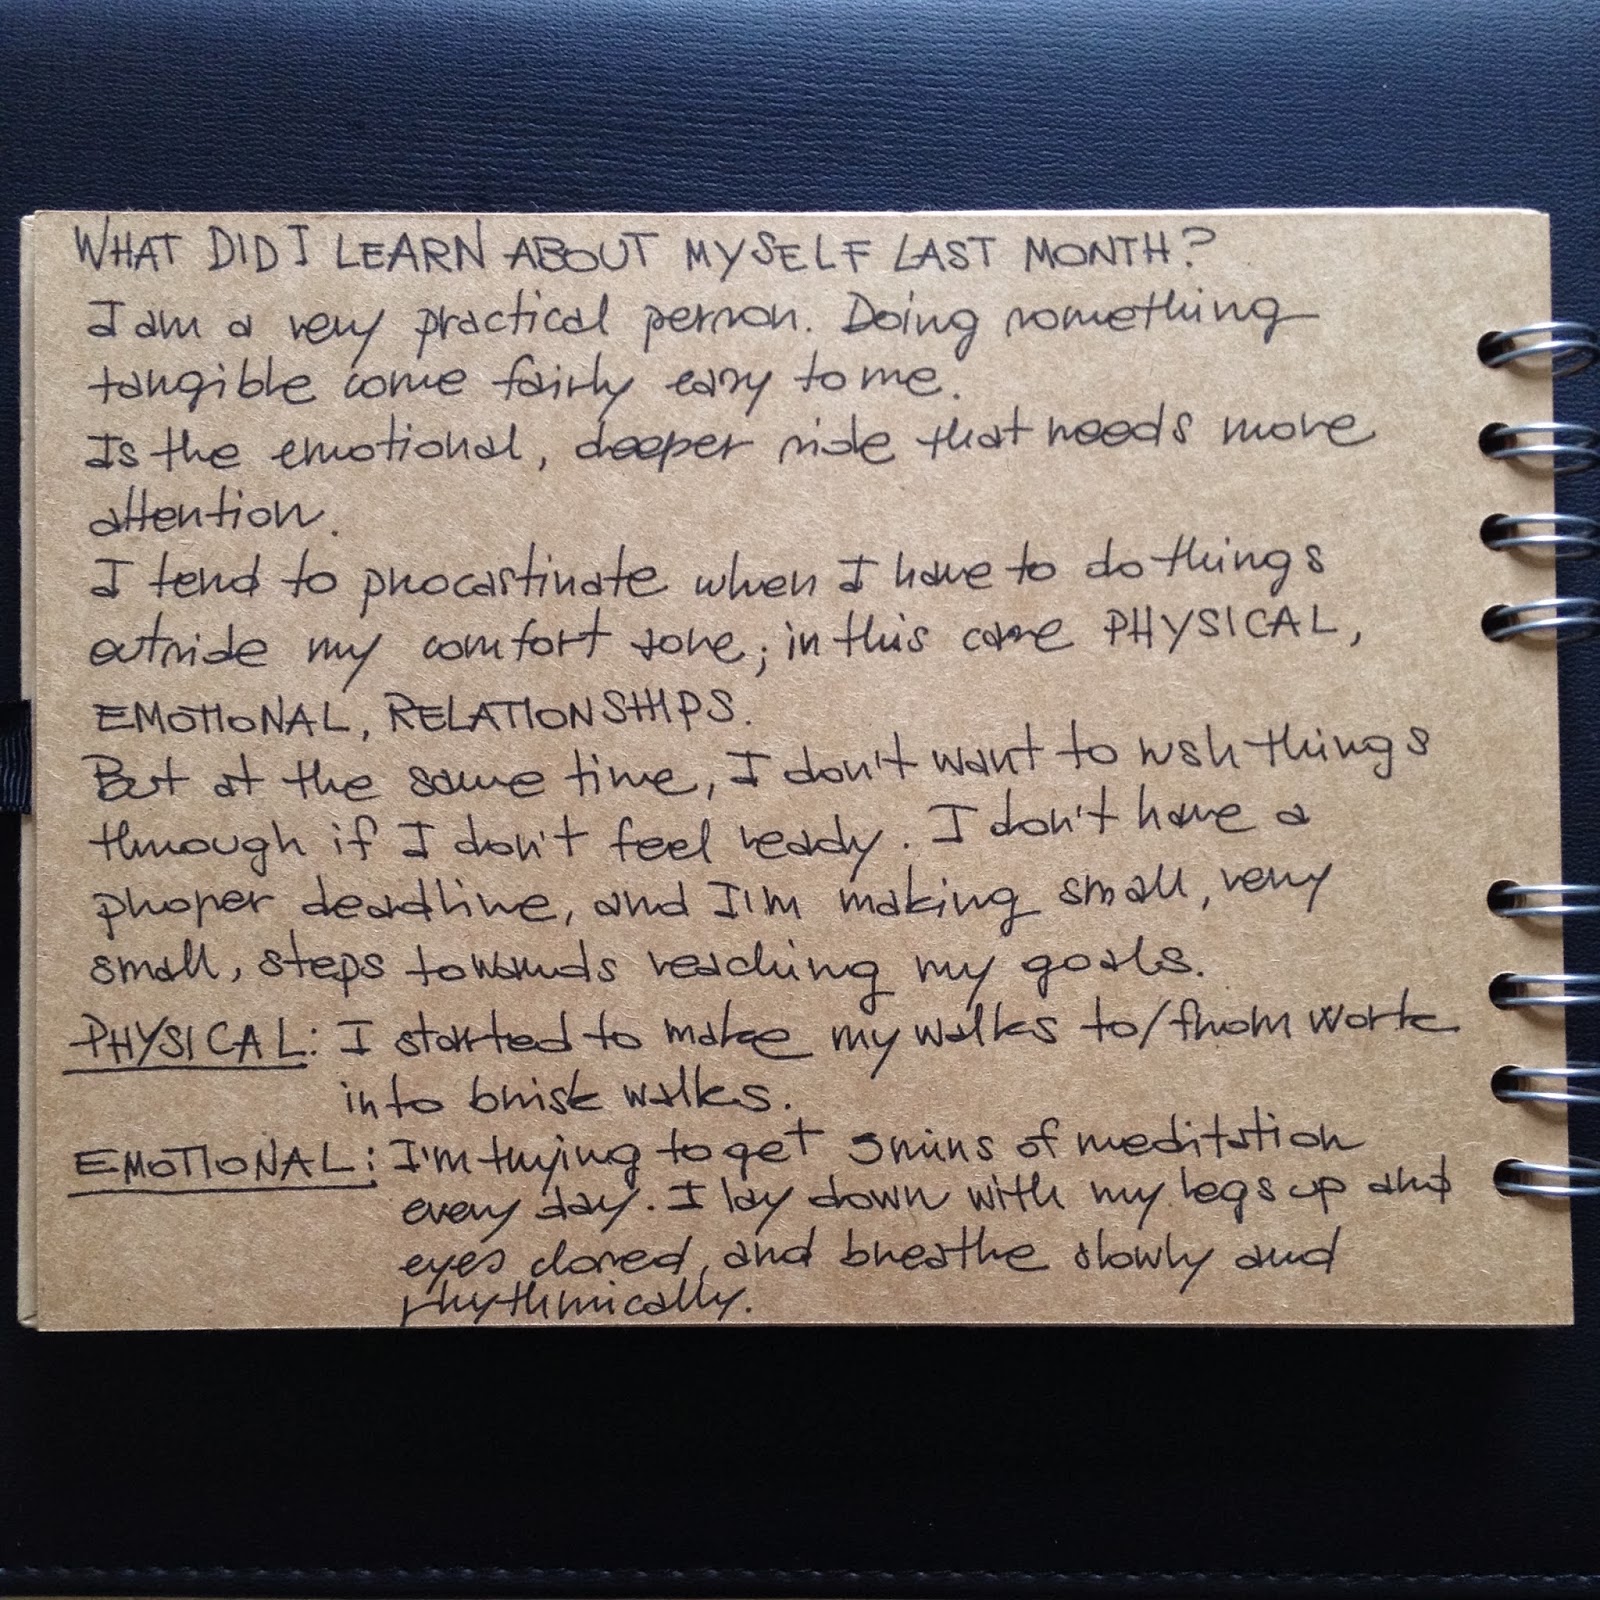 WHAT DID I LEARN ABOUT MYSELF LAST MONTH?
I am a very practical person. Doing something
tangible come fairly easy to me.
Is the emotional, deeper side that needs more
attention.
I tend to procastinate when I have to do things
outside my comfort zone; in this case PHYSICAL,
EMOTIONAL, RELATIONSHIPS.
But at the same time, I don't want to rush things
through if I don't feel ready. I don't have a
proper deadline, and I'm making small, very
small, steps towards reaching my goals.
PHYSICAL: I started to make my walks to/from work
into brisk walks.
EMOTIONAL: I'm trying to get 5 mins of meditation
every day. I lay down with my legs up and
eyes closed, and breathe slowly and
rhythmically.